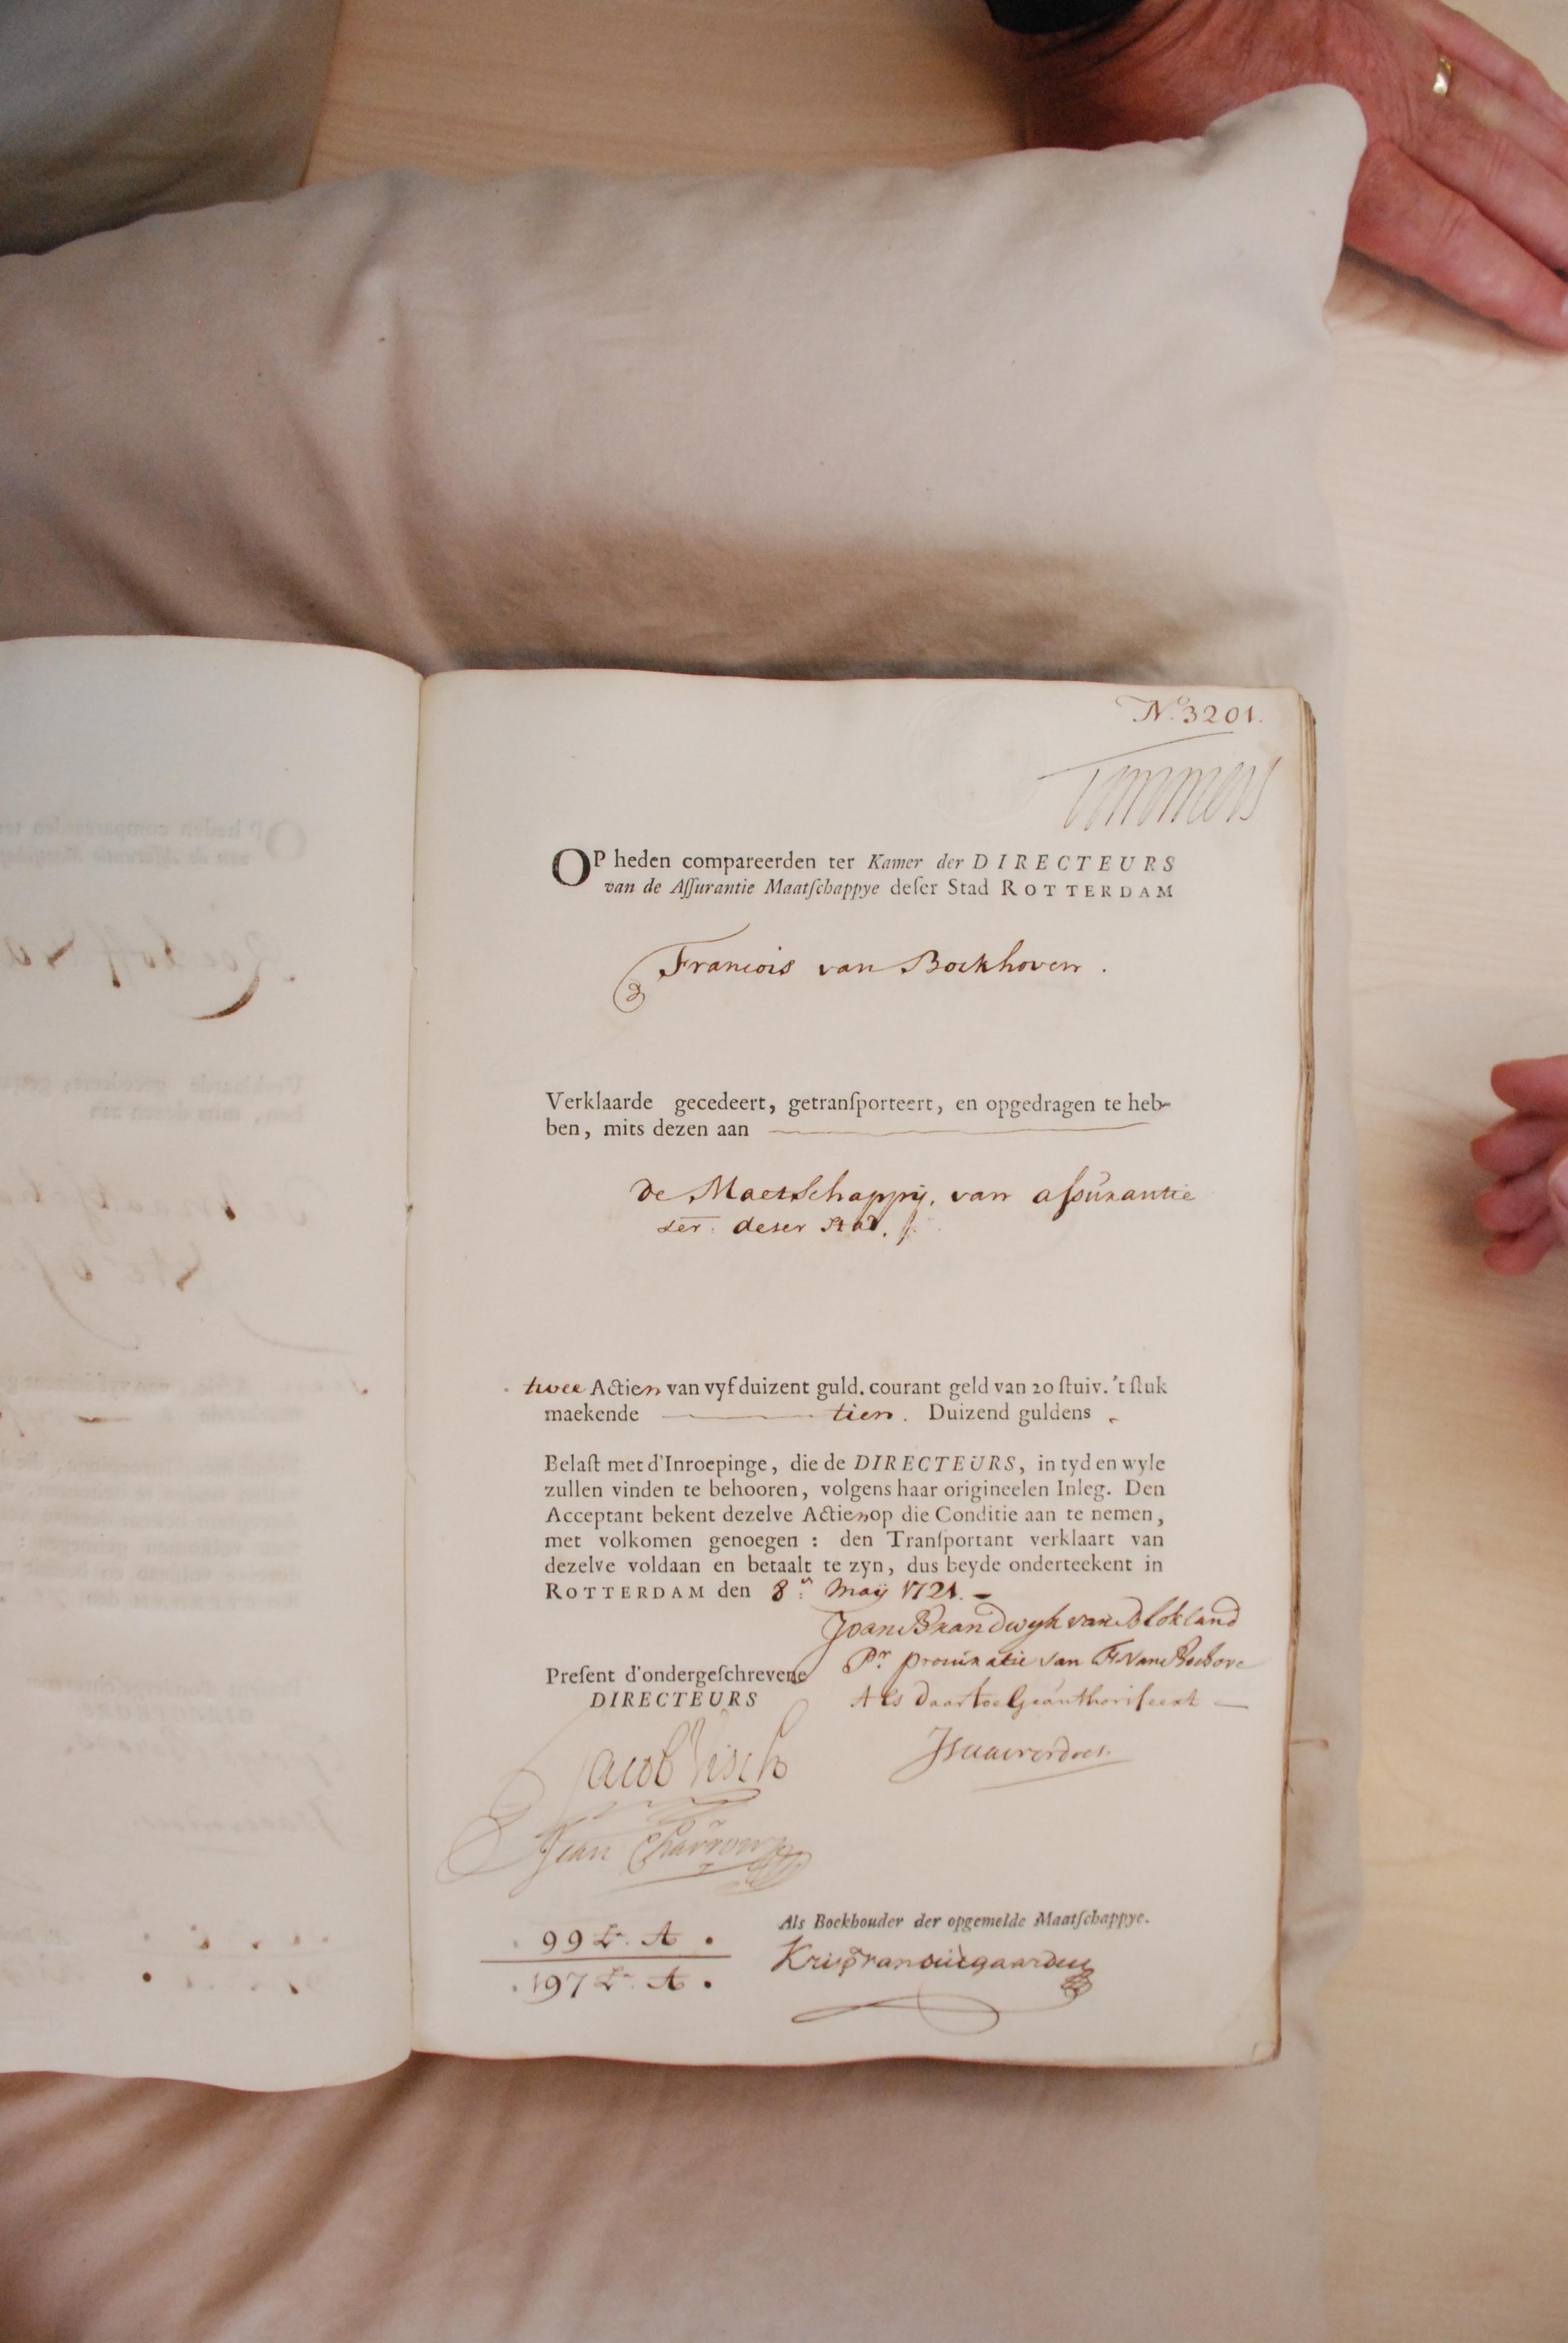 N.º 3201.
Timmers
OP heden compareerden ter Kamer der DIRECTEURS
van de Assurantie Maatschappye deser Stad ROTTERDAM
Francois van Bockhoven.
Verklaarde gecedeert, getransporteert, en opgedragen te heb-
ben, mits dezen aan
de Maetschappij, van assurantie
deser Stad.
twee Actien van vyf duizent guld. courant geld van 20 stuiv. 't stuk
maekende tien. Duizend guldens
Belast met d'Inroepinge, die de DIRECTEURS, in tyd en wyle
zullen vinden te behooren, volgens haar origineelen Inleg. Den
Acceptant bekent dezelve Actien op die Conditie aan te nemen,
met volkomen genoegen : den Transportant verklaart van
dezelve voldaan en betaalt te zyn, dus beyde onderteekent in
ROTTERDAM den 8:n Maij 1721.
Joan Brandwyk van Blokland
Pr. procuratie van F. Van
Present d'ondergeschrevene
DIRECTEURS
Als Daar toe Geauthoriseert
Jacob Visch
Jean Charron
Als Boekhouder der opgemelde Maatschappye.
99 L.r A.
197 L.r A.